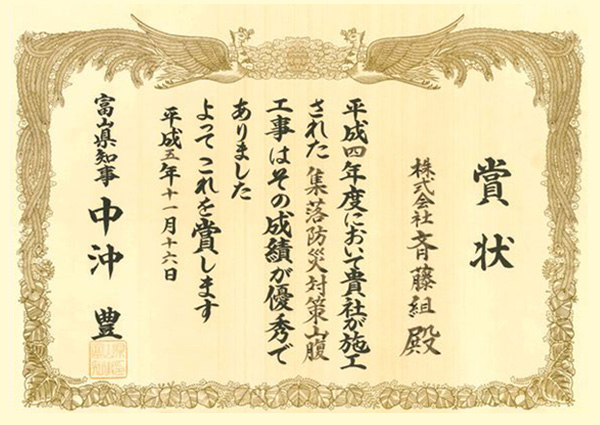 賞状
株式会社 斉藤組 殿
平成四年度において貴社が施工
された 集落防災対策山腹
工事 はその成績が優秀で
ありました
よってこれを賞します
平成五年十一月十六日
富山県知事 中沖 豊